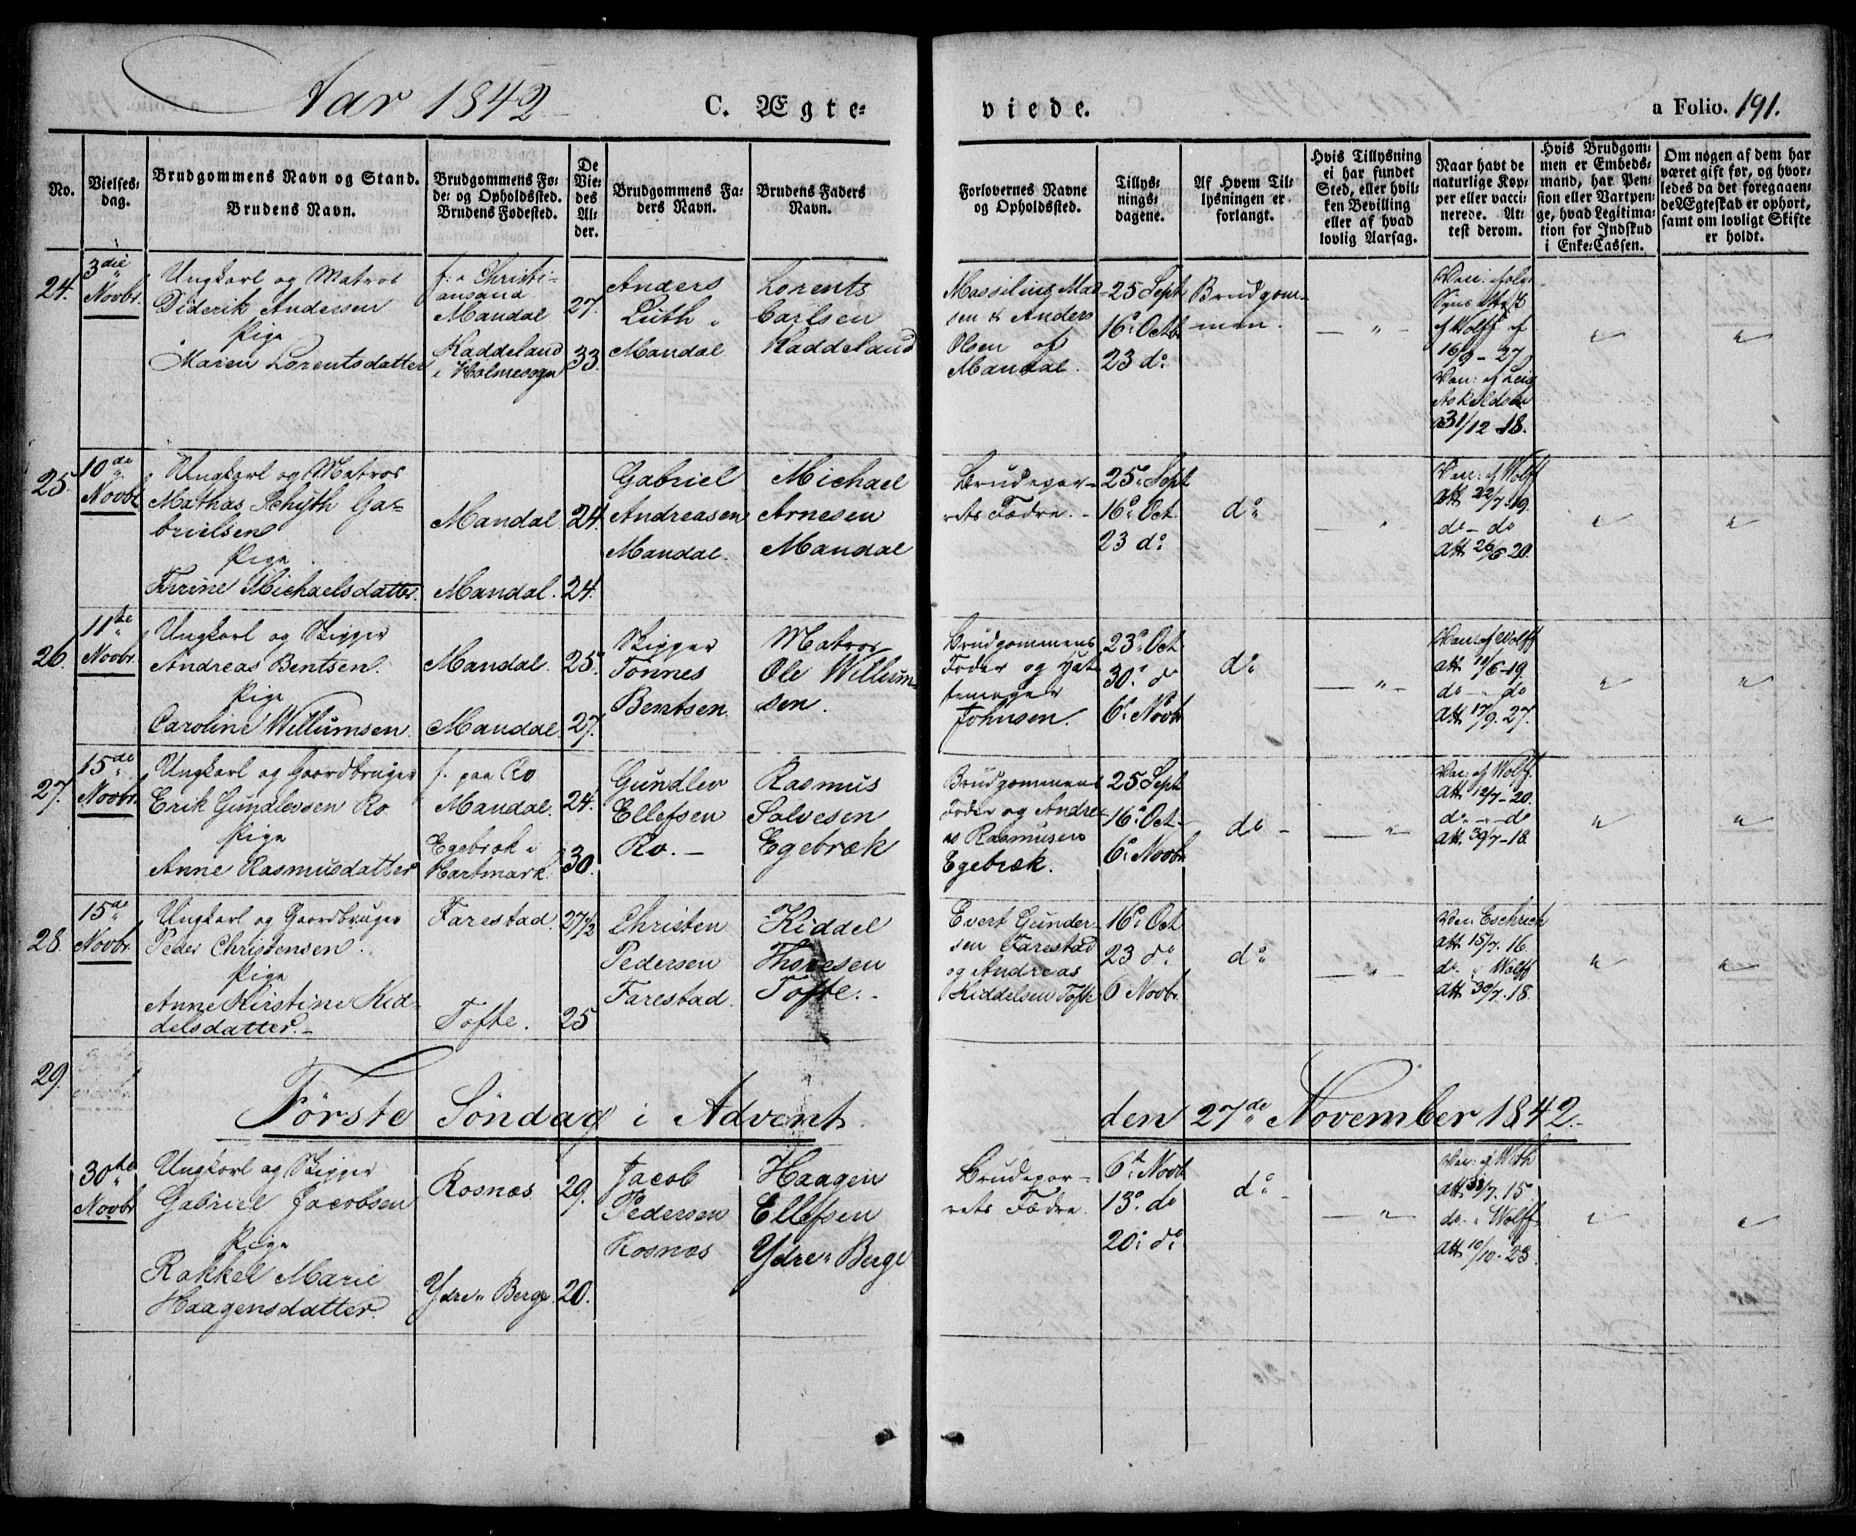 Aar 1842
C. Ægte=
viede.
a Folio. 191.
No.
Vielses=
dag.
Brudgommens Navn og Stand.
Brudens Navn.
Brudgommens Fø=
de= og Opholdssted.
Brudens Fødested.
De
Vie=
des
Al=
der.
Brudgommens Fa=
ders Navn.
Brudens Faders
Navn.
Forlovernes Navne
og Opholdssted.
Tillys=
nings=
dagene.
Af Hvem Til=
lysningen er
forlangt.
Hvis Tillysning
ei har fundet
Sted, eller hvil=
ken Bevilling
eller af hvad
lovlig Aarsag.
Naar havt de
naturlige Kop=
per eller vacci=
nerede. At=
test derom.
Hvis Brudgom=
men er Embeds=
mand, har Pen=
sion eller Vartpen=
ge, hvad Legitima=
tion for Indskud
i Enke=Cassen.
Om nogen af dem har
været gift før, og hvor=
ledes da det foregaaen=
de Ægteskab er ophørt,
samt om lovligt Skifte
er holdt.
24.
3die
Novbr.
Ungkarl og Matros
Diderik Andersen
Pige
Maren Lorentsdatter
f. i Christi-
ansand
Mandal
Haddeland
i Holmesogn
27.
33.
Anders
Luth
Mandal
Lorents
Carlsen
Haddeland
Masselius Mad-
sen & Anders
Olsen af
Mandal.
25 Sept
16. Octb
23 do
Brudgom-
men.
af Wolff af
16/9 - 27
31/12 - 18.
25.
10de
Novbr
Ungkarl og Matros
Mathas Schyth Ga-
brielsen
Pige
Terrine Michaelsdatter.
Mandal
Mandal.
24.
24.
Gabriel
Andreasen
Mandal.
Michael
Arnesen
Mandal
Brudepar-
rets Fædre.
25. Sept
16. Oct.
23 do
do
Vac: af Wolff
Att. 22/7-19.
do - do
Att. 26/6-20.
26.
11te
Novbr.
Ungkarl og Skipper
Andreas Bentsen.
Pige
Caroline Willumsen.
Mandal.
Mandal.
25.
27.
Skipper
Tønnes
Bentsen.
Matros
Ole Willum-
sen.
Brudgommens
Fader og Hat-
temager
Johnsen.
23. Oct.
30. do
6. Novbr
do
Vac: af Wolff
Att. 11/6-19.
do - do
Att. 17/9. 27.
27.
15de
Novbr.
Ungkarl og Gaardbruger
Erik Gundlevsen Ro
Pige
Anne Rasmusdatter
f. paa Ro
Mandal.
Egebræk i
Hartmark.
24.
30.
Gundlev
Ellefsen
Ro.
Rasmus
Salvesen
Egebræk
Brudgommens
Fader og Andre-
as Rasmusen
Egebræk.
25 Sept
16. Oct
6. Novbr
do
Vac: af Wolff.
Att. 12/7-20.
do - do
Att. 30/7-18.
28.
15de
Novbr.
Ungkarl og Gaardbruger
Peder Christensen
Pige
Anne Kirstine Kid-
delsdatter.
Farestad.
Tofte.
27 1/2
25
Christen
Pedersen
Farestad.
Kiddel
Thoresen
Tofte.
Evert Gunder-
sen Farestad
og Andreas
Kiddelsen Tofte
16. Oct
23 do
6 Novbr.
do
Vac: Eschrich
Att. 15/7. 16
do. Wolff
Att. 30/7. 18.
29.
Første Søndag i Advent
den 27de November 1842.
30te
Novbr.
Ungkarl og Skipper
Gabriel Jacobsen
Pige
Rakkel Marie
Haagensdatter.
Rosnæs
Ydre Berge
29.
20.
Jacob
Pedersen
Rosnæs
Haagen
Ellefsen
Ydre Berge
Brudepar-
rets Fædre.
6. Novb
13. do
20. do
do
do. Wolff
Att. 10/10. 23.